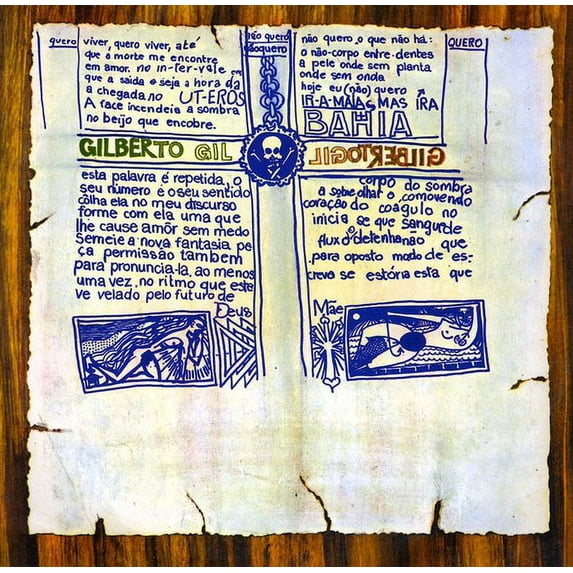 quero
viver, quero viver, até
que a morte me encontre
em amor. no in-ter-vale em
que a saida o seja a hora da
a chegada no UT-EROS
A face incendeia a sombra
no beijo que encobre.
não quero
nãoquero
não quero o que não há:
o não-corpo entre-dentes
a pele onde sem planta
onde sem onda
hoje eu (não) quero
IR-A-MAIAS MAS IRA
BAHIA
QUERO
GILBERTO GIL
GILBERTO GIL
esta palavra é repetida, o
seu número é o seu sentido
colha ela no meu discurso
forme com ela uma que
lhe cause amor sem medo
Semeie a nova fantasia pe
ça permissão também
para pronuncia-la, ao menos
uma vez, no ritmo que este
ve velado pelo futuro de
Deus
corpo do sombra
a sobre olhar o comovendo
coração do coágulo no
inicia se que sangurde
flux o detenha não que
para oposto modo de es-
creva se estória esta que
Mãe